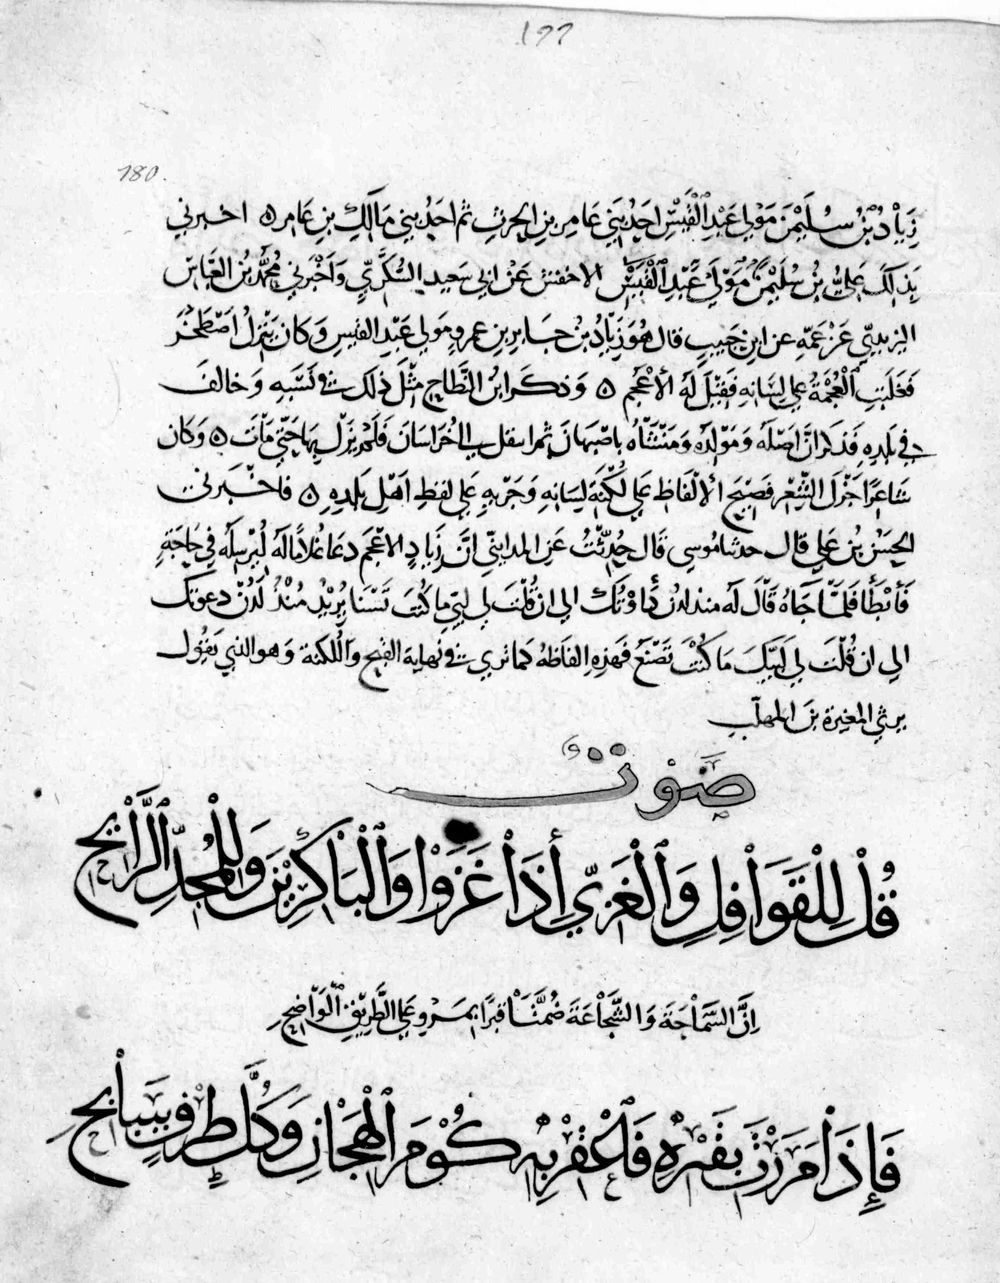 ١٧٧
180.
زِيَادُ بْنُ سُلَيْمٰنَ مَوْلى عَبْدِ الْقَيْسِ احَدُ بَنِي عَامِرِ بنِ الحرثِ ثم احَدُ بني مَالِكِ بنِ عَامرٍ ه اخبرني
بذلكَ عَلِيُّ بنُ سُلَيْمٰنَ مَوْلى عَبْدِ الْقَيْسِ الاخفش عَنْ ابي سَعيد السُّكَّرِيِّ وَاَخْبَرَنِي مُحَمَّدُ بنُ العبَّاس
اليزيديّ عَنْ عَمِّهِ عن ابنِ حَبيبٍ قال هُوَ زِيَادُ بن جَابِرِ بنِ عمروٍ مَولى عَبْدِ القَيسِ وَكانَ يَنْزِلُ اصْطَخْرَ
فَغَلَبَتِ الْعُجْمَةُ عَلى لِسَانِهِ فَقِيْلَ لَهُ الأعْجَم ه وَذكَرَ ابنُ النَّطَّاحِ مِثْلَ ذلكَ في نَسَبِهِ وَخالفَ
في بَلَدِهِ فَذكرَ انَّ اصْلَهُ وَمَوْلِدَهُ وَمَنْشَأهُ باصْبَهانَ ثم انتقل الى خُرَاسَانَ فَلَمْ يَزَلْ بِهَا حَتّى مَاتَ ه وَكان
شَاعِرًا جَزْلَ الشِّعْرِ فَصِيْحَ الألْفَاظِ عَلى لُكْنَةِ لِسَانِهِ وَجَرْيِهِ عَلى لَفظِ اهْلِ بَلدِهِ ه فاخْبَرَني
الحسَنُ بنُ عَليّ قال حدثنا موسى قال حُدِّثْتُ عَنِ المدايني انّ زِيَادًا الاعْجَم دعَا غُلامًا لَهُ لُيُرْسِلَهُ في حَاجَةٍ
فَأبْطَأ فَلَمَّا جَاهُ قَالَ لَه منذ لدن دأوْتكَ الى ان قُلْتَ لي لبّى ما كُنْتَ تَسْنَا يُرِيْدُ مُنْذُ لَدُنْ دعوتكَ
الى ان قُلْتَ لي لَبَّيْكَ مَا كُنْتَ تَصْنَعُ فَهذِهِ الفاظهُ كما تَرى في نهايةِ القبح وَاللُّكنة وَهوَ الذي يَقُول
يرثي المغيرة بن المهلّب
صَوْت
قُلْ لِلْقَوَافِلِ وَالْغَزِيِّ أِذَا غَزَوْا وَالْبَاكِرِيْنَ وَلِلْمُجِدِّ الرَّايِحِ
اِنَّ السَّمَاحَةَ وَالشَّجَاعَةَ ضُمِّنَا قبرًا بِمَرْوَ عَلى الطَّرِيْقِ الْوَاضِحِ
فَإِذَا مَرَرْتَ بِقَبْرِهِ فَاعْقِرْ بِهِ كُوْمَ الْهِجَانِ وَكُلَّ طِرْفٍ سَابِحِ